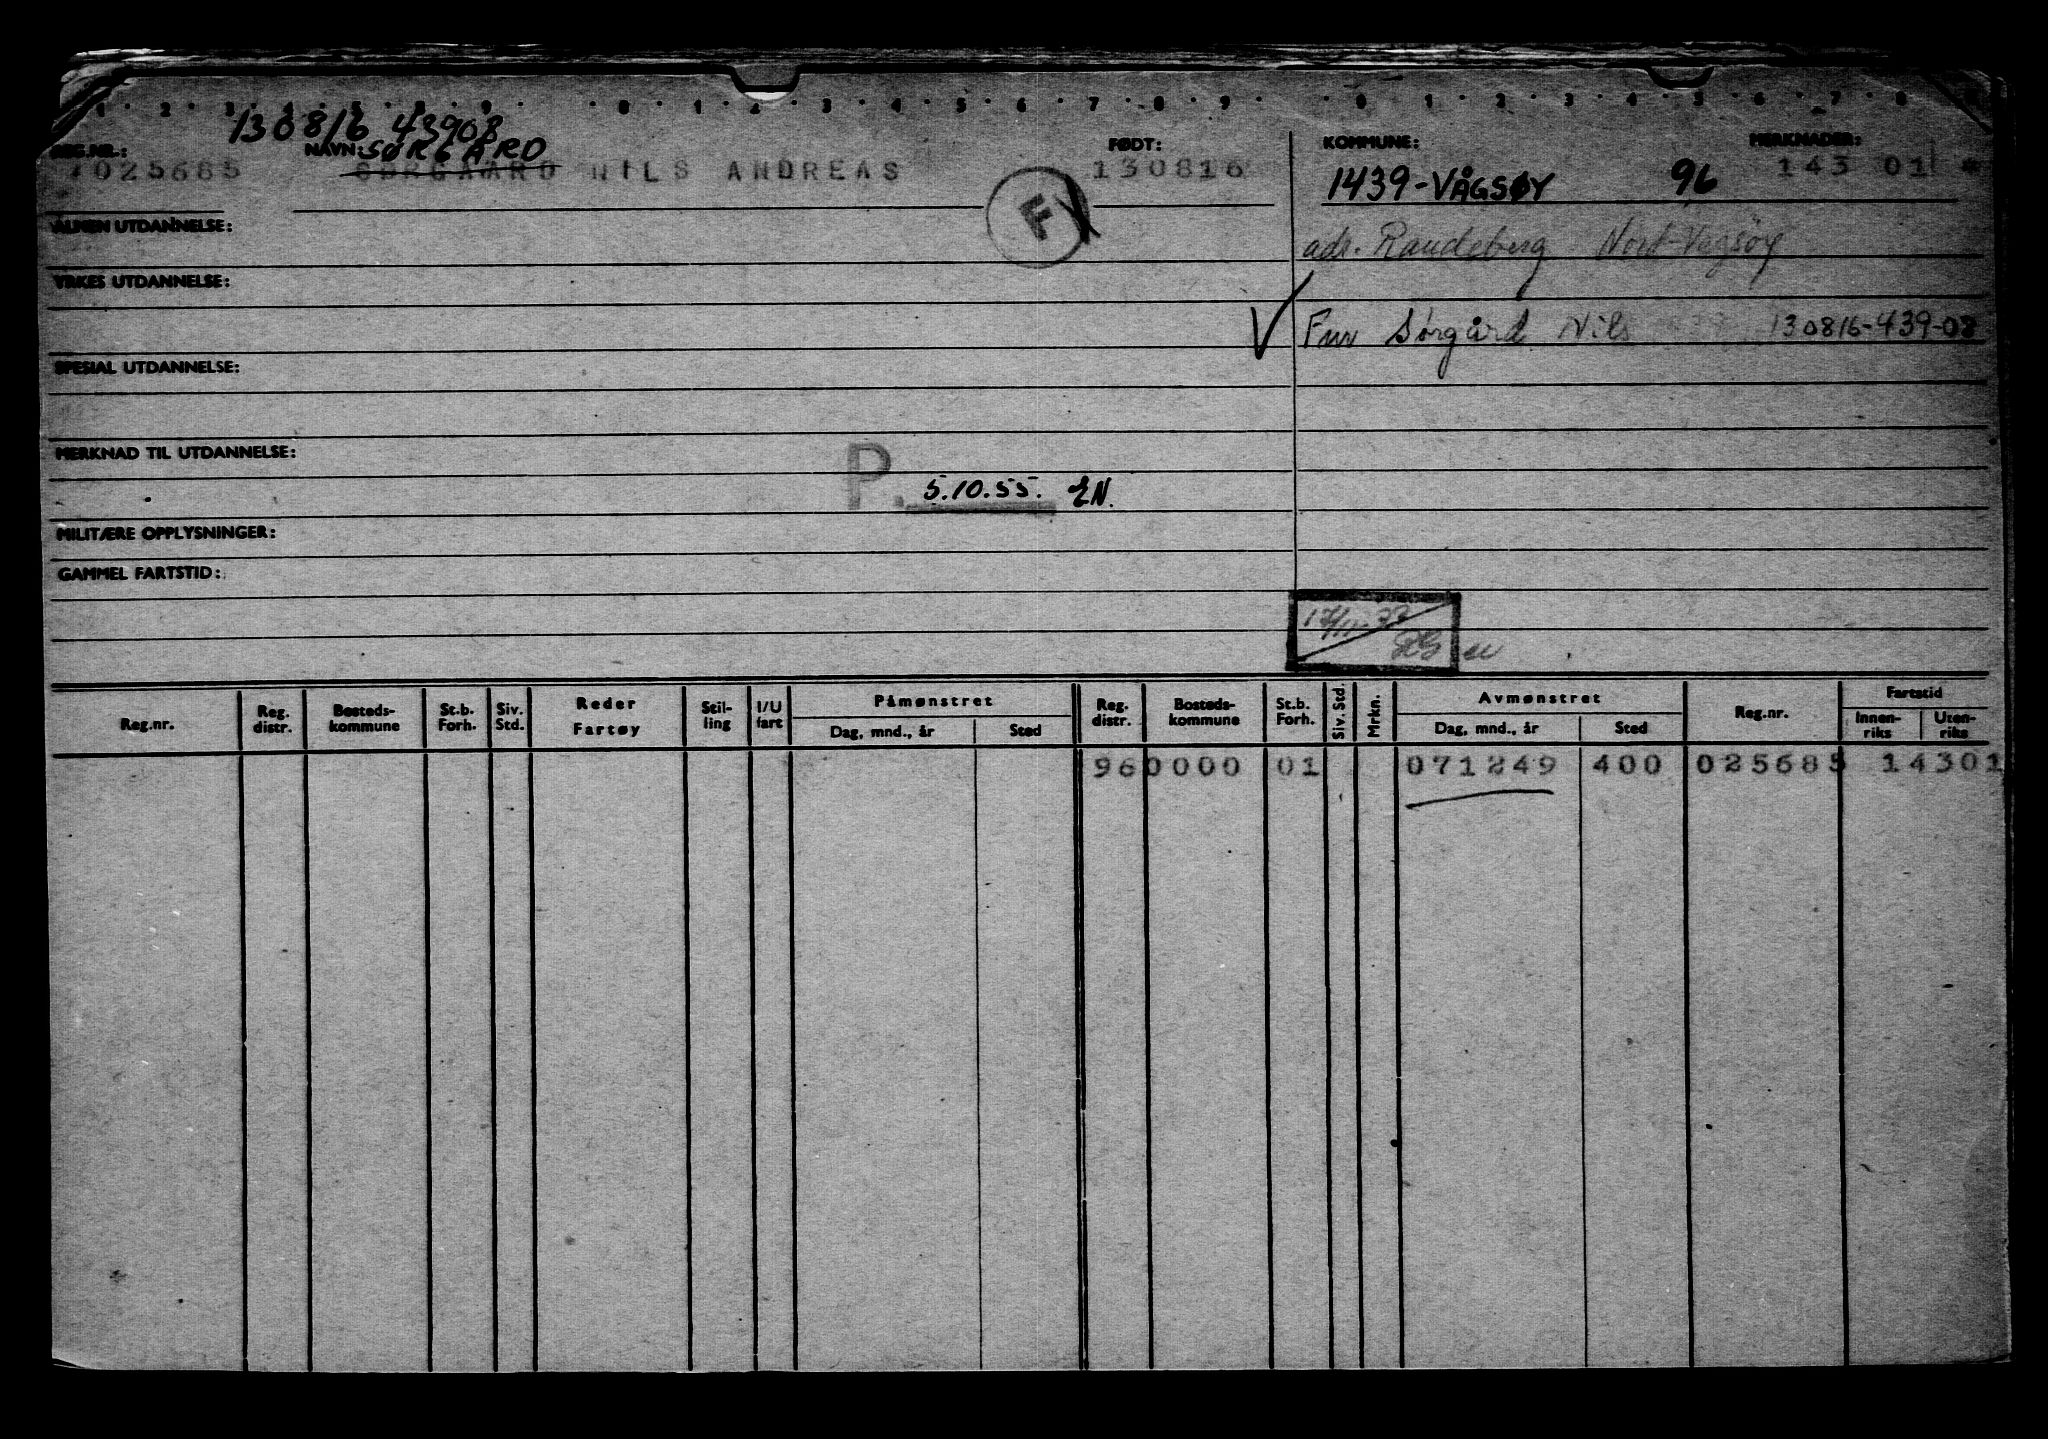 1 2 3 4 5 6 7 8 9 0 1 2 3 4 5 6 7 8 9 0 1 2 3 4 5 6 7 8
130816 43908
REG.NR.: NAVN: SØRGÅRD FØDT: KOMMUNE: MERKNADER:
025685 SØRGAARD NILS ANDREAS 130816 1439-VÅGSØY 96 143 01 *
F
ALMEN UTDANNELSE:
adr. Raudeberg Nord-Vågsøy
YRKES UTDANNELSE:
Fnr Sørgård Nils 130816-439-08
SPESIAL UTDANNELSE:
MERKNAD TIL UTDANNELSE:
P. 5.10.55. EN.
MILITÆRE OPPLYSNINGER:
GAMMEL FARTSTID:
Reg.nr. Reg. distr. Bosteds- kommune St.b. Forh. Siv. Std. Reder Fartøy Stil- ling I/U fart Påmønstret Dag, mnd., år Sted Reg. distr. Bosteds- kommune St.b. Forh. Siv. Std. Mrkn. Avmønstret Dag, mnd., år Sted Reg.nr. Fartstid Innen- riks Uten- riks
96 0000 01 071249 400 025685 14301